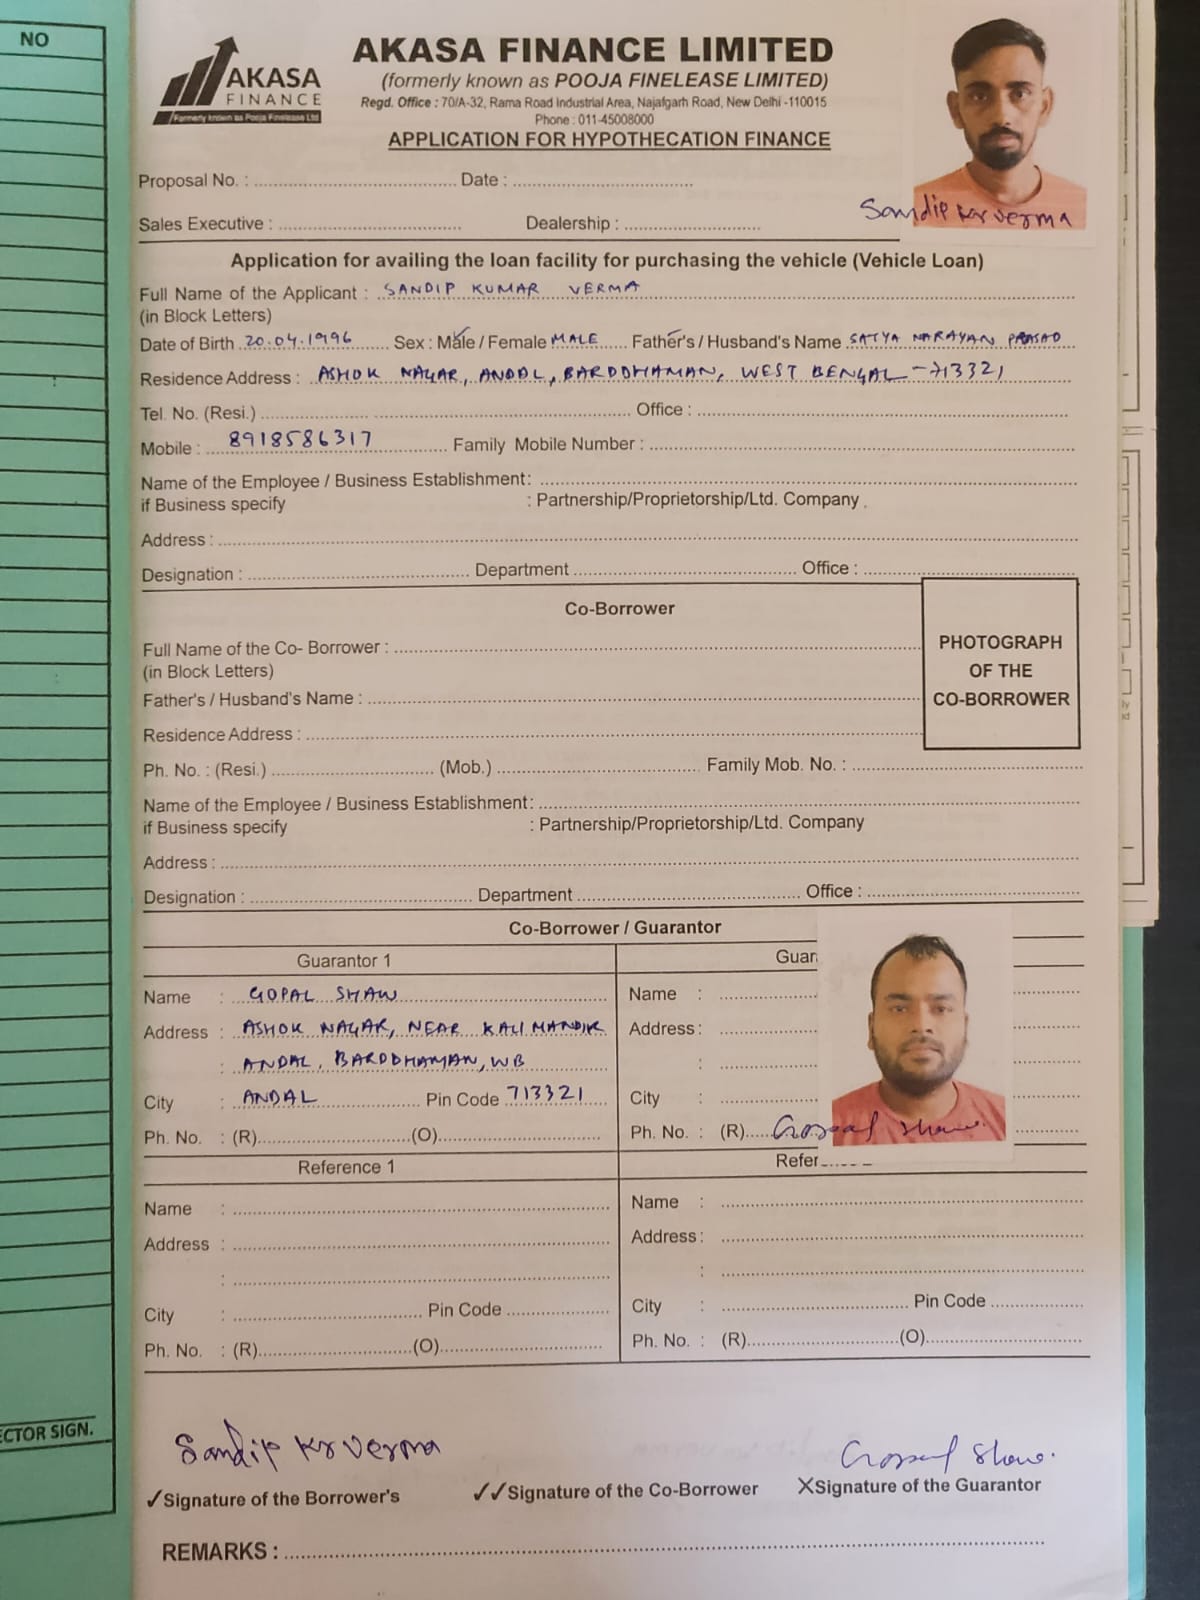 NO
AKASA
FINANCE
Formerly known as Pooja Finelease Ltd
AKASA FINANCE LIMITED
(formerly known as POOJA FINELEASE LIMITED)
Regd. Office : 70/A-32, Rama Road Industrial Area, Najafgarh Road, New Delhi -110015
Phone : 011-45008000
APPLICATION FOR HYPOTHECATION FINANCE
Proposal No. : Date :
Sandip Kr verma
Sales Executive : Dealership :
Application for availing the loan facility for purchasing the vehicle (Vehicle Loan)
Full Name of the Applicant : SANDIP KUMAR VERMA
(in Block Letters)
Date of Birth 20.04.1996 Sex : Male / Female MALE Father's / Husband's Name SATYA NARAYAN PRASAD
Residence Address : ASHOK NAGAR, ANDAL, BARDDHAMAN, WEST BENGAL - 713321
Tel. No. (Resi.) Office :
Mobile : 8918586317 Family Mobile Number :
Name of the Employee / Business Establishment:
if Business specify : Partnership/Proprietorship/Ltd. Company .
Address :
Designation : Department Office :
Co-Borrower
PHOTOGRAPH
OF THE
CO-BORROWER
Full Name of the Co- Borrower :
(in Block Letters)
Father's / Husband's Name :
Residence Address :
Ph. No. : (Resi.) (Mob.) Family Mob. No. :
Name of the Employee / Business Establishment:
if Business specify : Partnership/Proprietorship/Ltd. Company
Address :
Designation : Department Office :
Co-Borrower / Guarantor
Guarantor 1 Guar
Name : GOPAL SHAW Name :
Address : ASHOK NAGAR, NEAR KALI MANDIR Address :
: ANDAL, BARDDHAMAN, WB :
City : ANDAL Pin Code 713321 City :
Ph. No. : (R) (O) Ph. No. : (R) Gopal Shaw.
Reference 1 Refer
Name : Name :
Address : Address :
: :
City : Pin Code City : Pin Code
Ph. No. : (R) (O) Ph. No. : (R) (O)
Sandip Kr verma Gopal Shaw.
✓Signature of the Borrower's ✓✓Signature of the Co-Borrower XSignature of the Guarantor
ECTOR SIGN.
REMARKS :